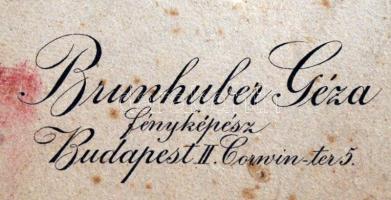 Brunhuber Géza
fényképész
Budapest II. Corwin-ter 5.